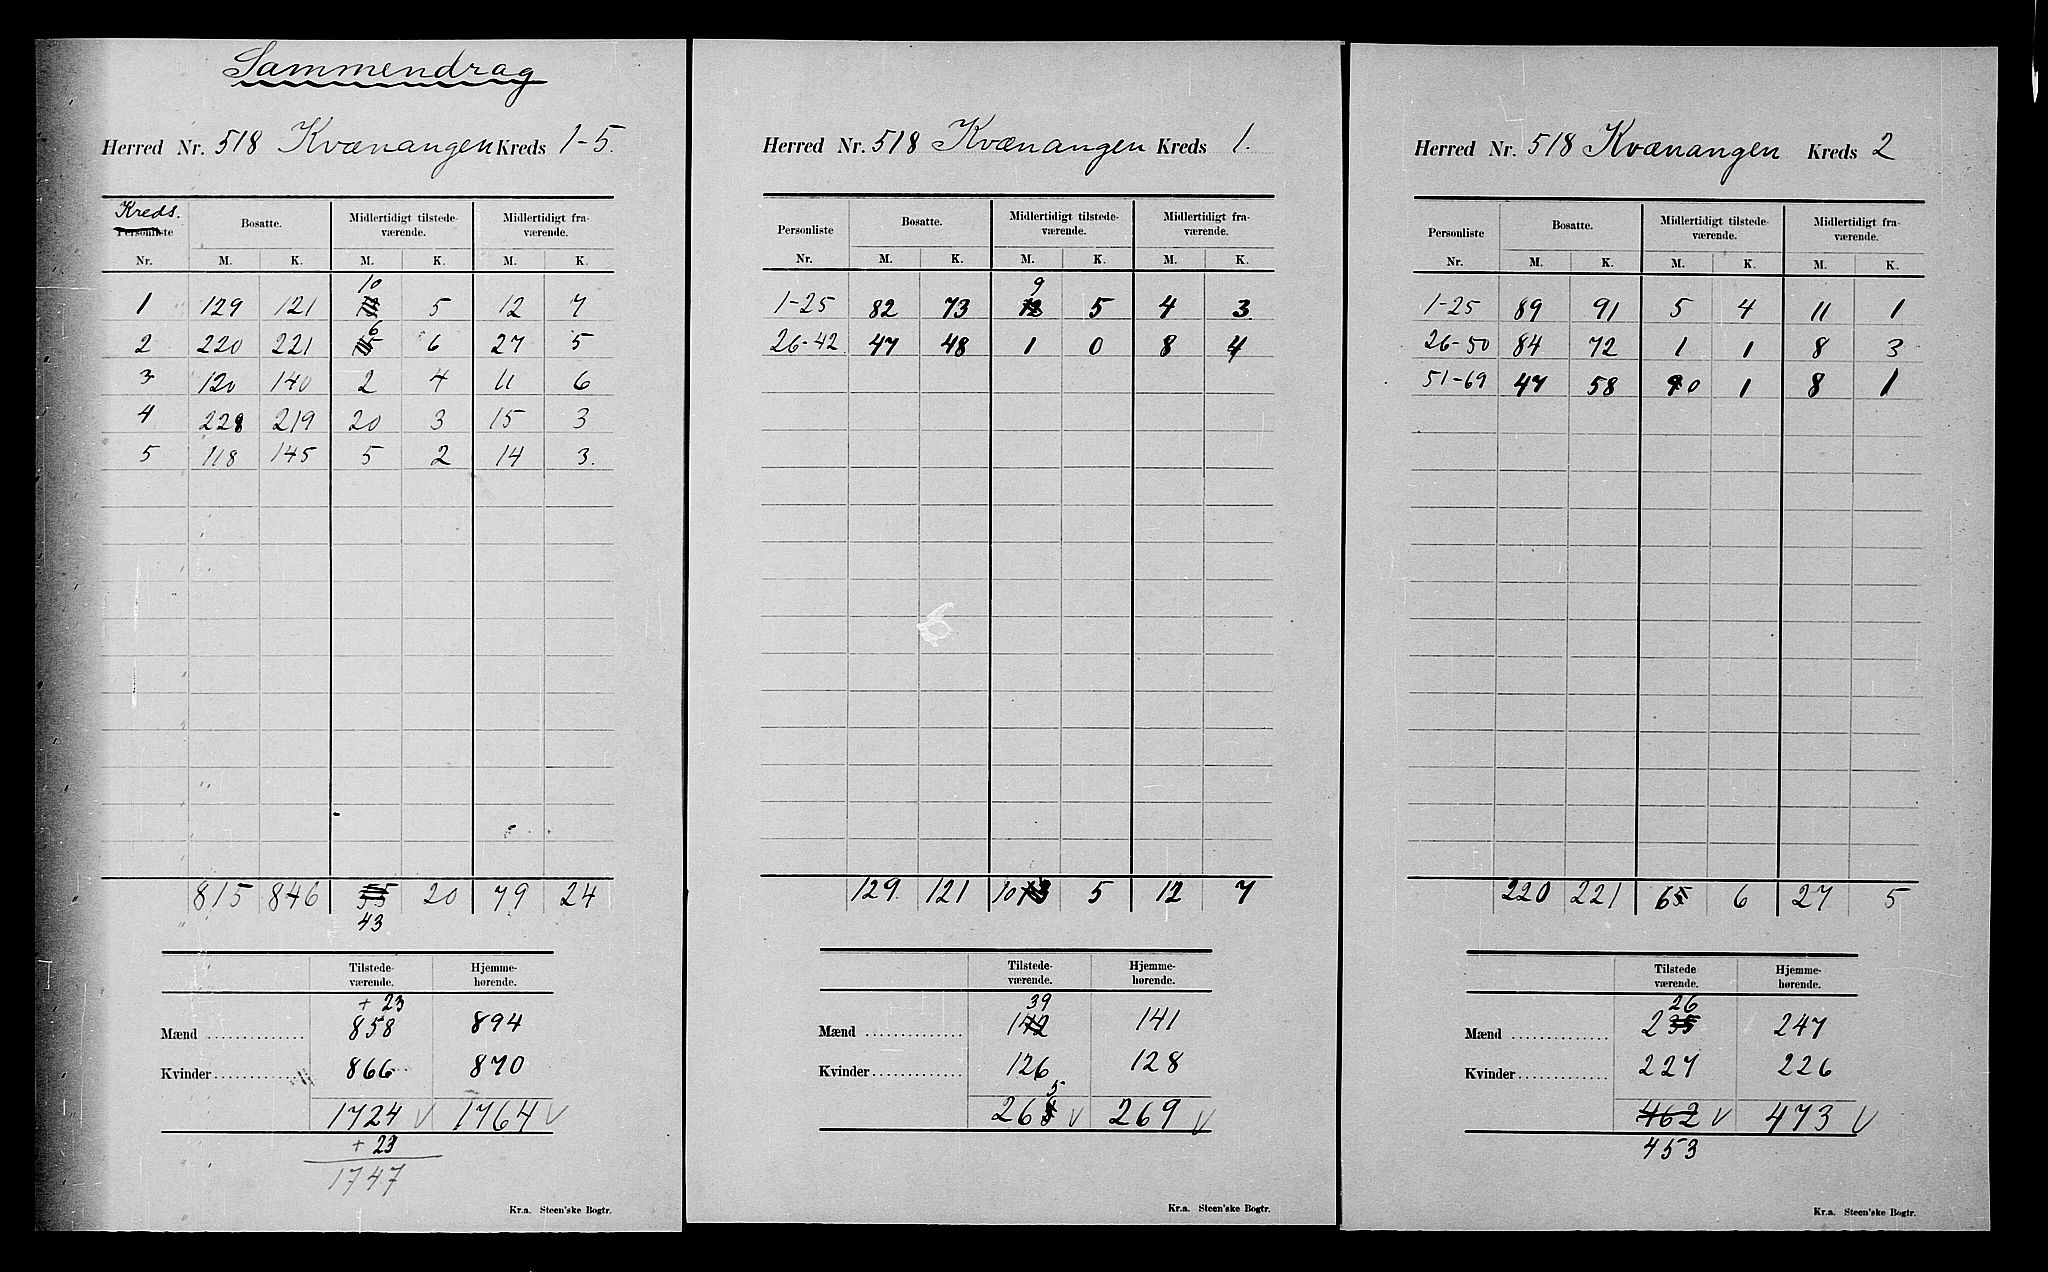 Sammendrag
Herred Nr. 518 Kvænangen Kreds 1-5.
Kreds.
Personliste Bosatte. Midlertidigt tilstede- Midlertidigt fra-
værende. værende.
Nr. M. K. M. K. M. K.
10
1 129 121 5 12 7
6
2 220 221 15 6 27 5
3 120 140 2 4 11 6
4 228 219 20 3 15 3
5 118 145 5 2 14 3.
815 846 55 20 79 24
43
Tilstede- Hjemme-
værende. hørende.
+ 23
Mænd 858 894
Kvinder 866 870
1724 V 1764 V
+ 23
1747
Kr.a. Steen'ske Bogtr.
Herred Nr. 518 Kvænangen Kreds 1.
Personliste Bosatte. Midlertidigt tilstede- Midlertidigt fra-
værende. værende.
Nr. M. K. M. K. M. K.
9
1-25 82 73 12 5 4 3
26-42 47 48 1 0 8 4
129. 121 10 13 5 12 7
Tilstede- Hjemme-
værende. hørende.
39
Mænd 142 141
Kvinder 126 128
5
268 V 269 V
Kr.a. Steen'ske Bogtr.
Herred Nr. 518 Kvænangen Kreds 2
Personliste Bosatte. Midlertidigt tilstede- Midlertidigt fra-
værende. værende.
Nr. M. K. M. K. M. K.
1-25 89 91 5 4 11 1
26-50 84 72 1 1 8 3
51-69 47 58 0 1 8 1
220 221 6 6 27 5
Tilstede Hjemme-
værende. hørende.
26
Mænd 235 247
Kvinder 227 226
462 V 473 V
453
Kr.a. Steen'ske Bogtr.